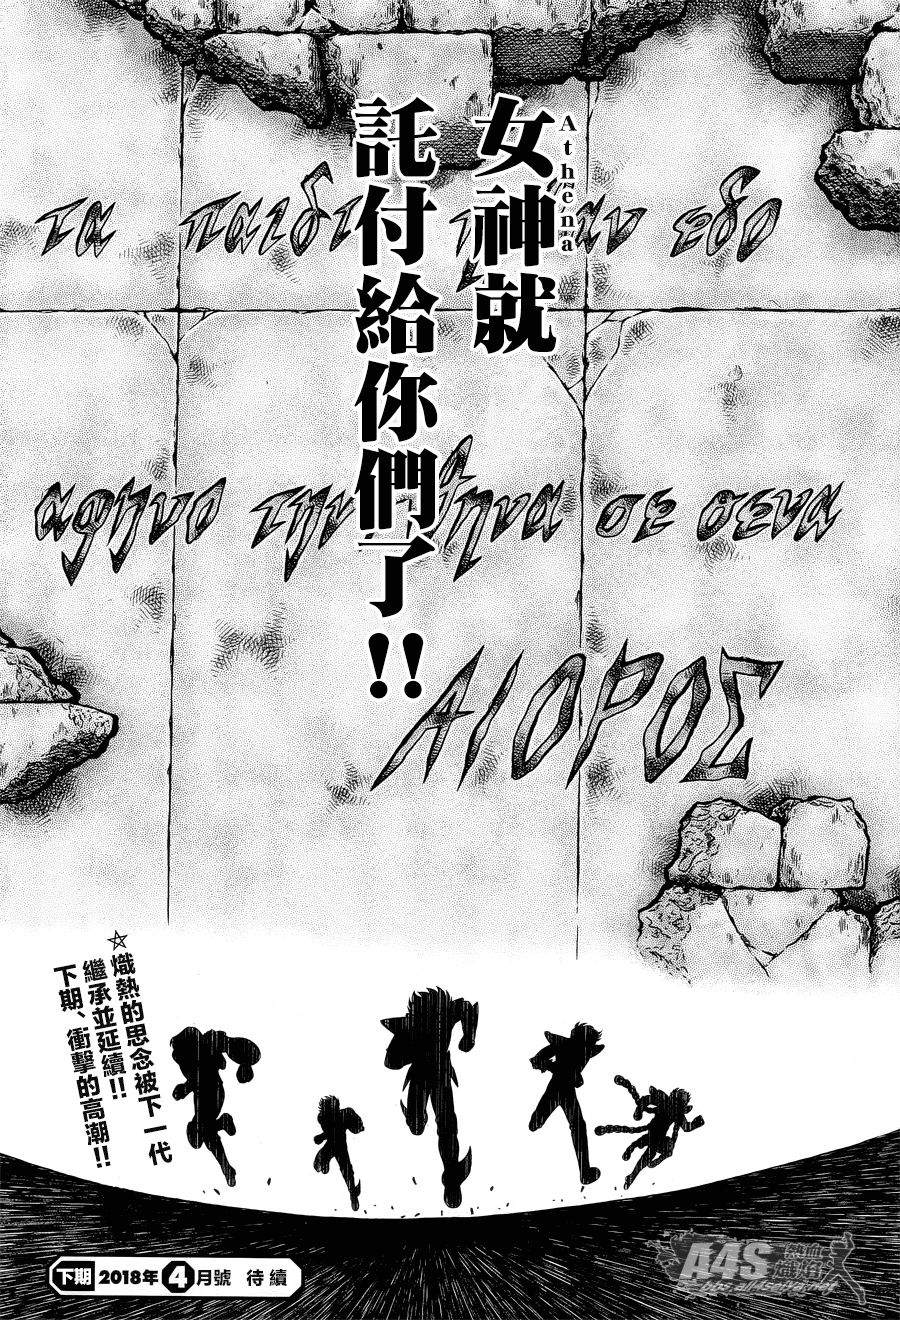 女神就
Athena
託付給你們了!!
τα παιδι
αν εδο
αφηνο την
θηνα σε σενα
ΑΙΟΡΟΣ
☆熾熱的思念被下一代
繼承並延續!!
下期、衝擊的高潮!!
下期 2018年4月號 待續
A4S 熱血